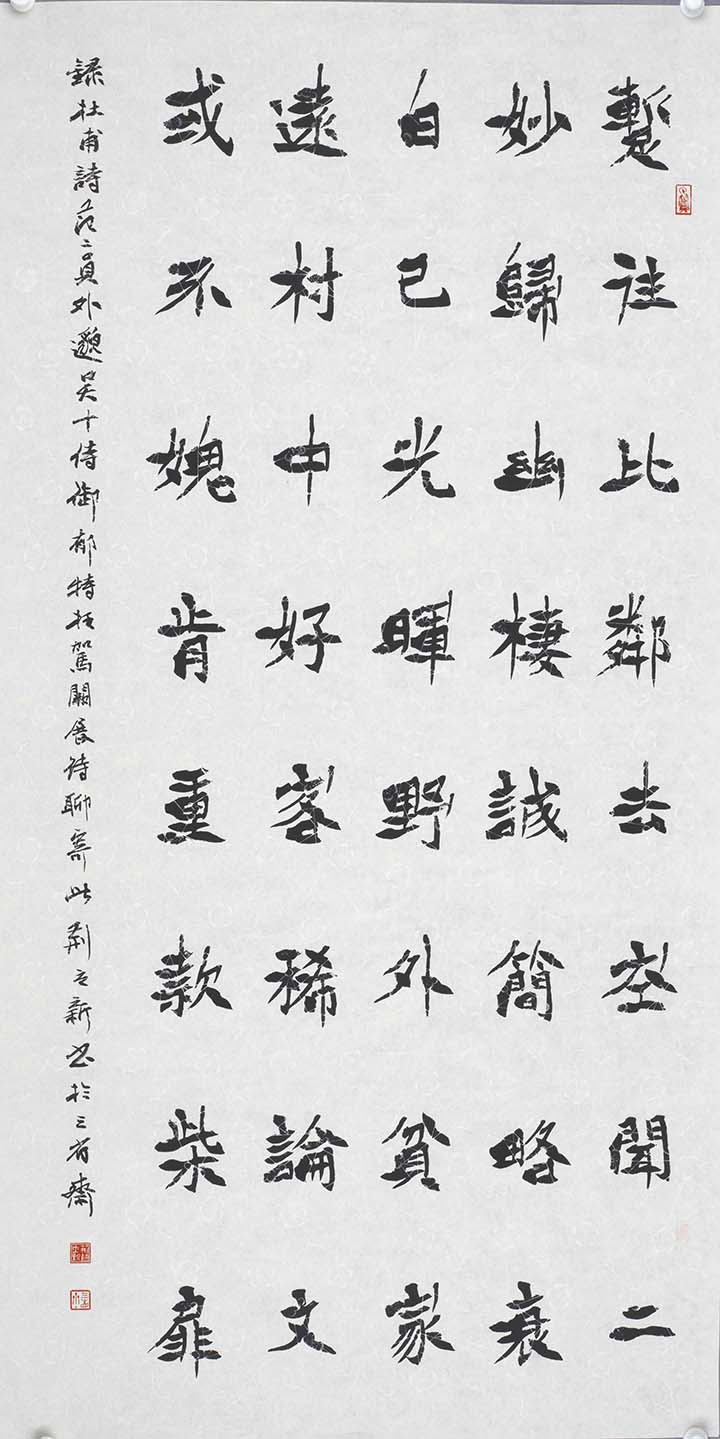 蹔往比鄰去空聞二
妙歸幽棲誠簡略衰
白已光暉野外貧家
遠村中好客稀論文
或不媿肯重款柴扉
錄杜甫詩范二員外邈吳十侍御郁特枉駕闕展待聊寄此荊立新書於三省齋